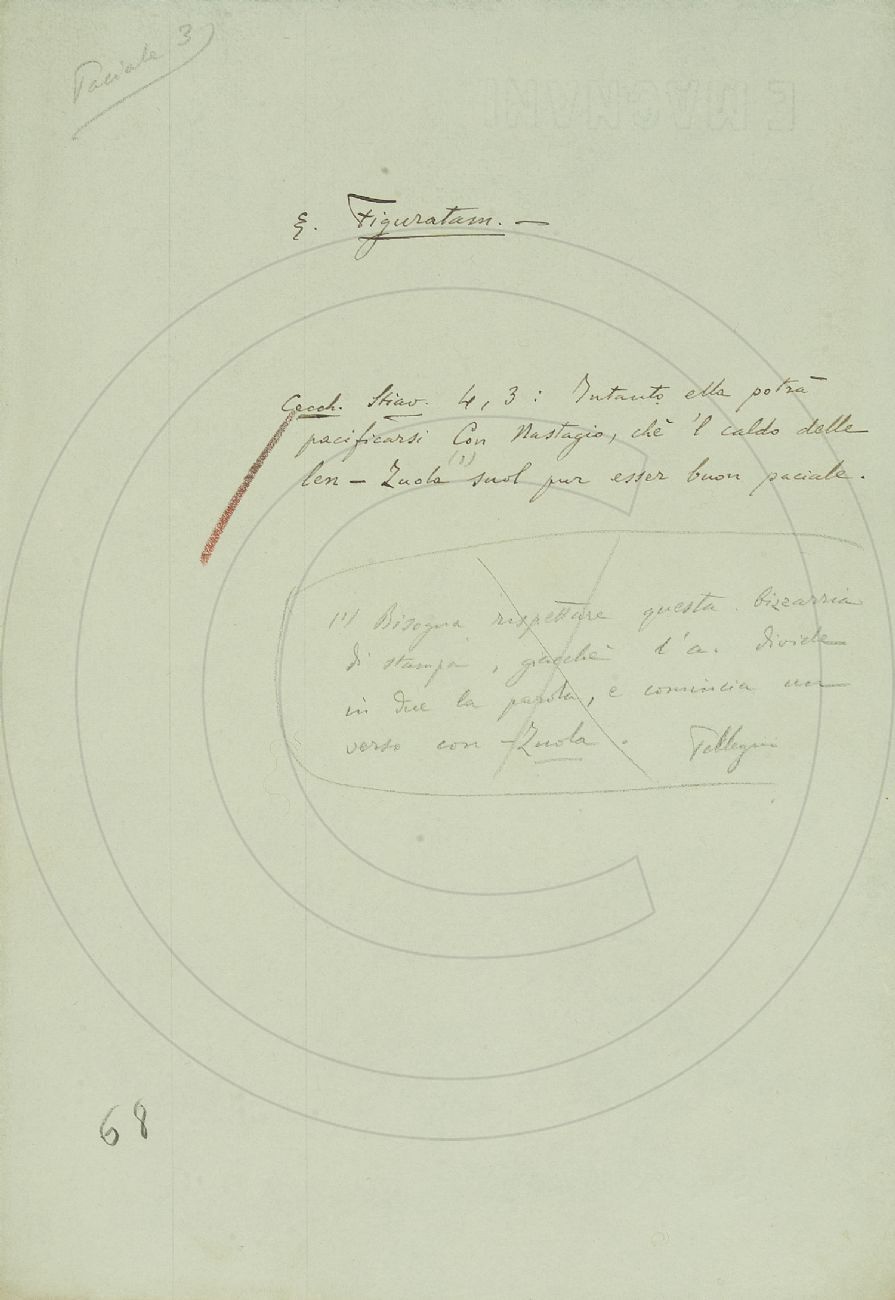 Paciale 3
E MAGNANI
§. Figuratam. —
Cecch. Stiav. 4, 3 : Intanto ella potrà
pacificarsi Con Nastagio, chè 'l caldo delle
len – Zuola (1) suol pur esser buon paciale.
(1) Bisogna rispettare questa bizzarria
di stampa, giacchè l'a. divide
in due la parola, e comincia un
verso con Zuola.
68